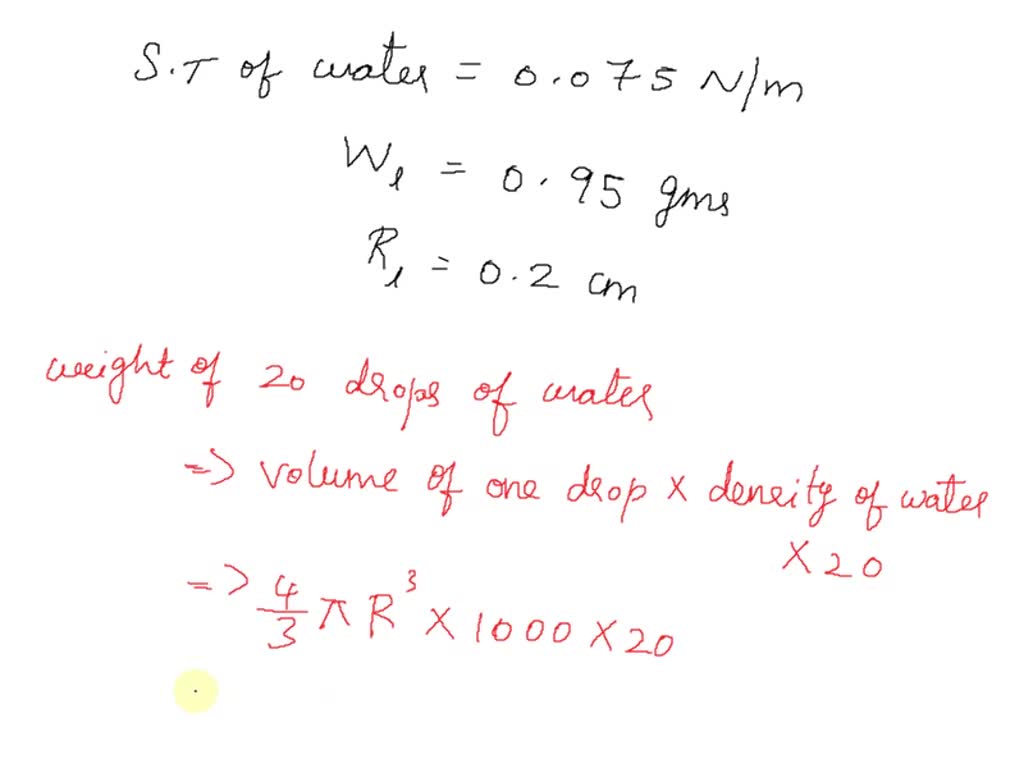 S.T of water = 0.075 N/m
W₁ = 0.95 gms
R₁ = 0.2 cm
weight of 20 drops of water
=> volume of one drop × density of water
× 20
=> 4/3 π R³ × 1000 × 20